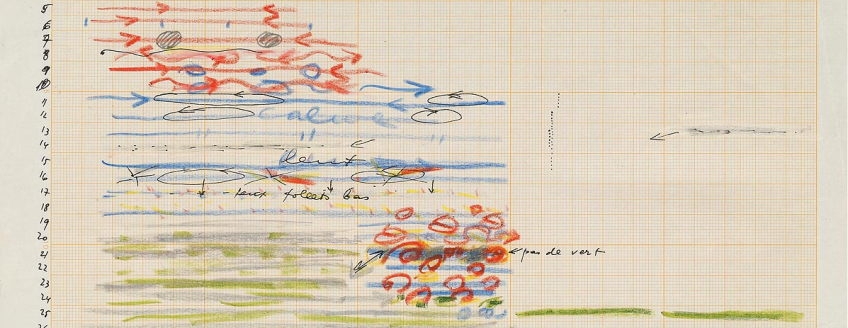 5
6
7
8
9
10
11
12 calme
13
14
15 lent
16
17 - feux follets bas
18
19
20
21 pas de vert
22
23
24
25